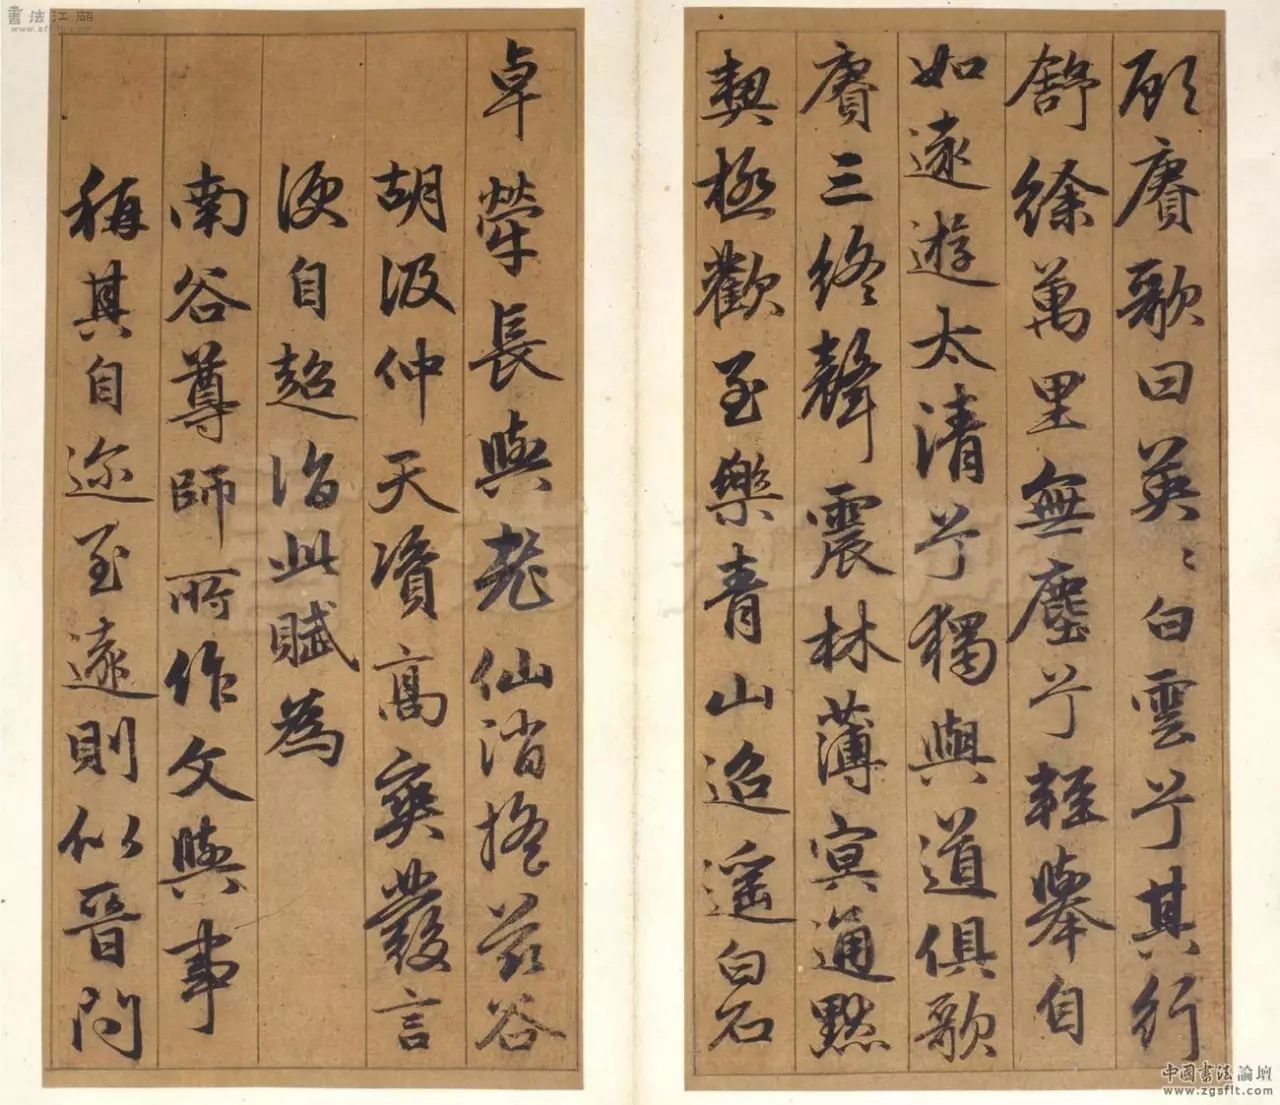 願賡歌曰英〻白雲兮其行
舒徐萬里無塵兮輕舉自
如遠遊太清兮獨與道俱歌
賡三終聲震林薄冥通默
契極歡至樂青山迢遥白石
卓犖長與老仙消搖兹谷
胡汲仲天資高爽發言
便自超詣此賦為
南谷尊師所作文與事
稱其自迩至遠則似晉問
書法江湖
中國書法論壇
www.zgsflt.com